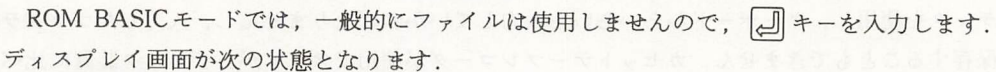 ROM BASICモードでは，一般的にファイルは使用しませんので，⏎キーを入力します．
ディスプレイ画面が次の状態となります．